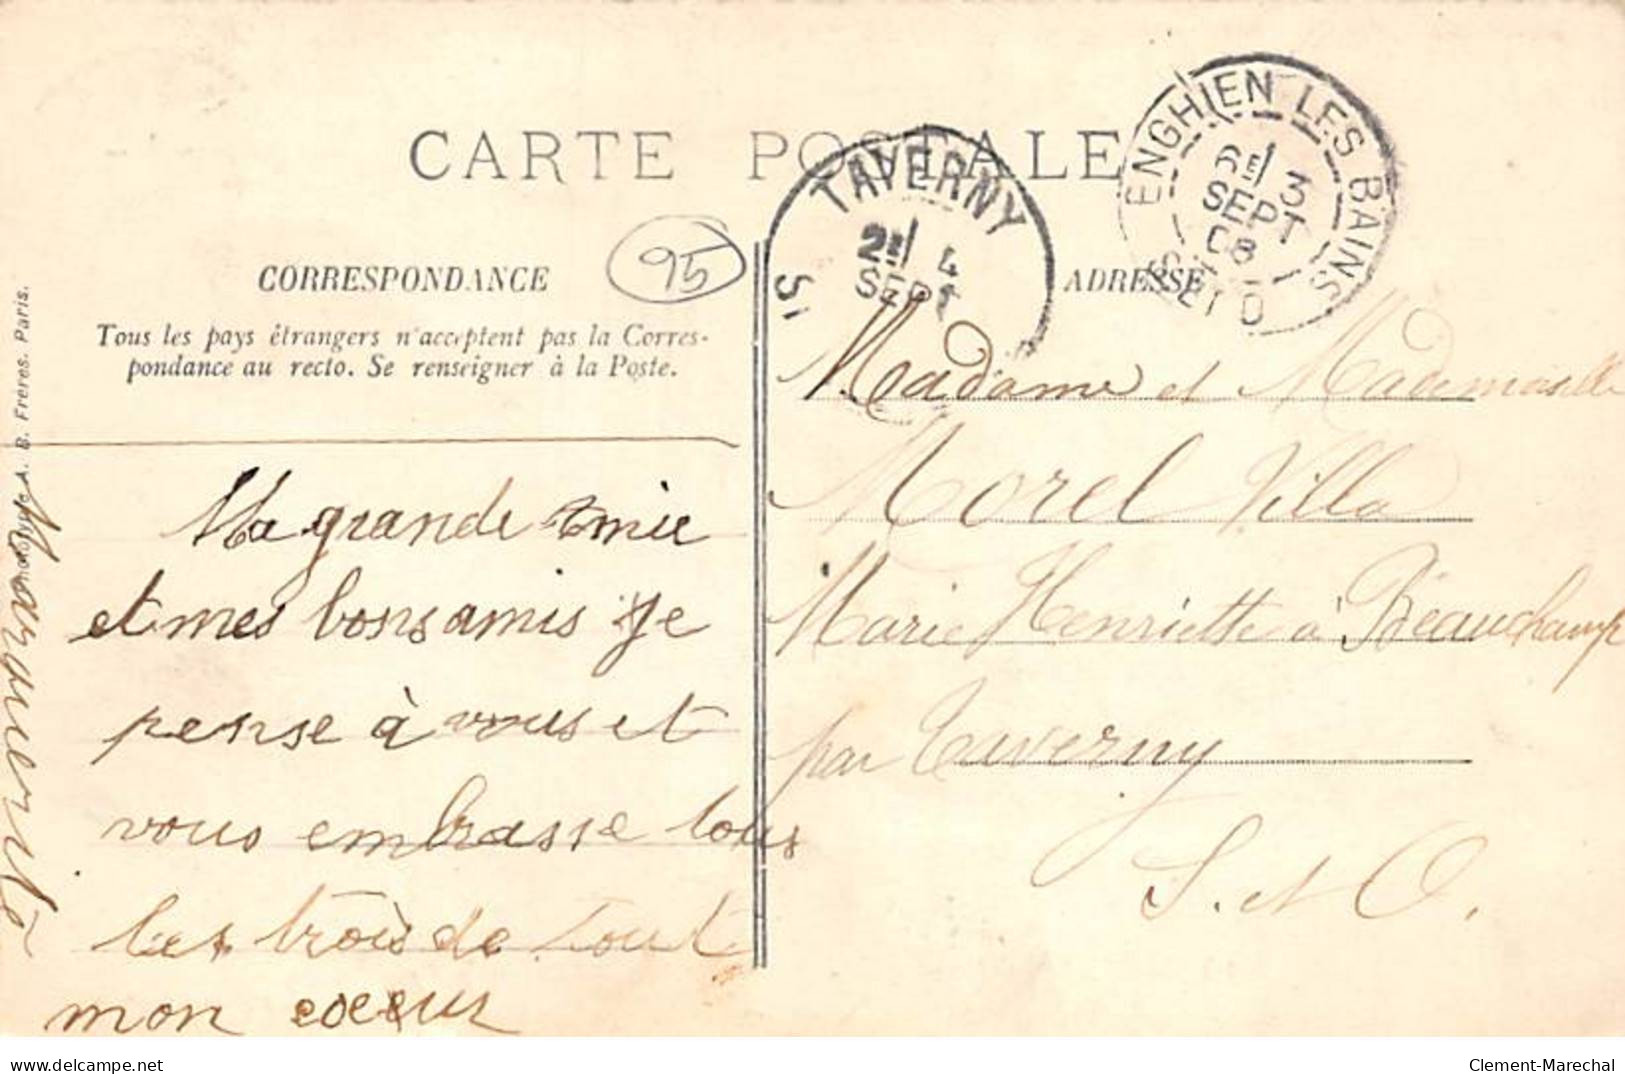 CARTE POSTALE
ENGHIEN LES BAINS
6E/ 3
SEPT
08
S. ET O
TAVERNY
2E/ 4
SEPT
95
CORRESPONDANCE
Tous les pays étrangers n'acceptent pas la Corres-
pondance au recto. Se renseigner à la Poste.
ADRESSE
A. B. Frères. Paris.
Ma grande amie
et mes bons amis Je
pense à vous et
vous embrasse tous
les trois de tout
mon coeur
Marguerite
Madame et Mademoiselle
Morel Villa
Marie Henriette à Béauchamp
par Taverny
S. et O.
delcampe.net
Clement-Marechal